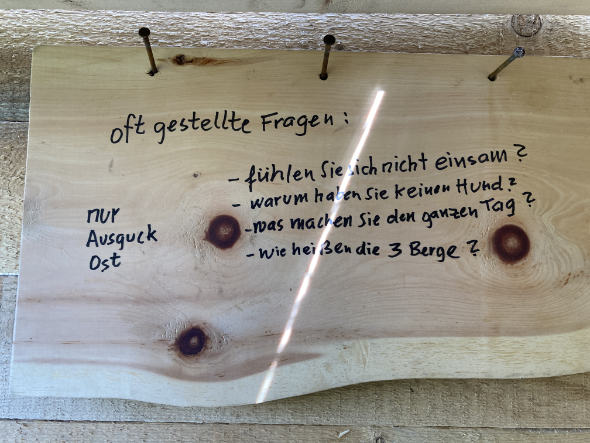 oft gestellte Fragen:
- fühlen Sie sich nicht einsam?
- warum haben Sie keinen Hund?
- was machen Sie den ganzen Tag?
- wie heißen die 3 Berge?
nur
Ausguck
Ost